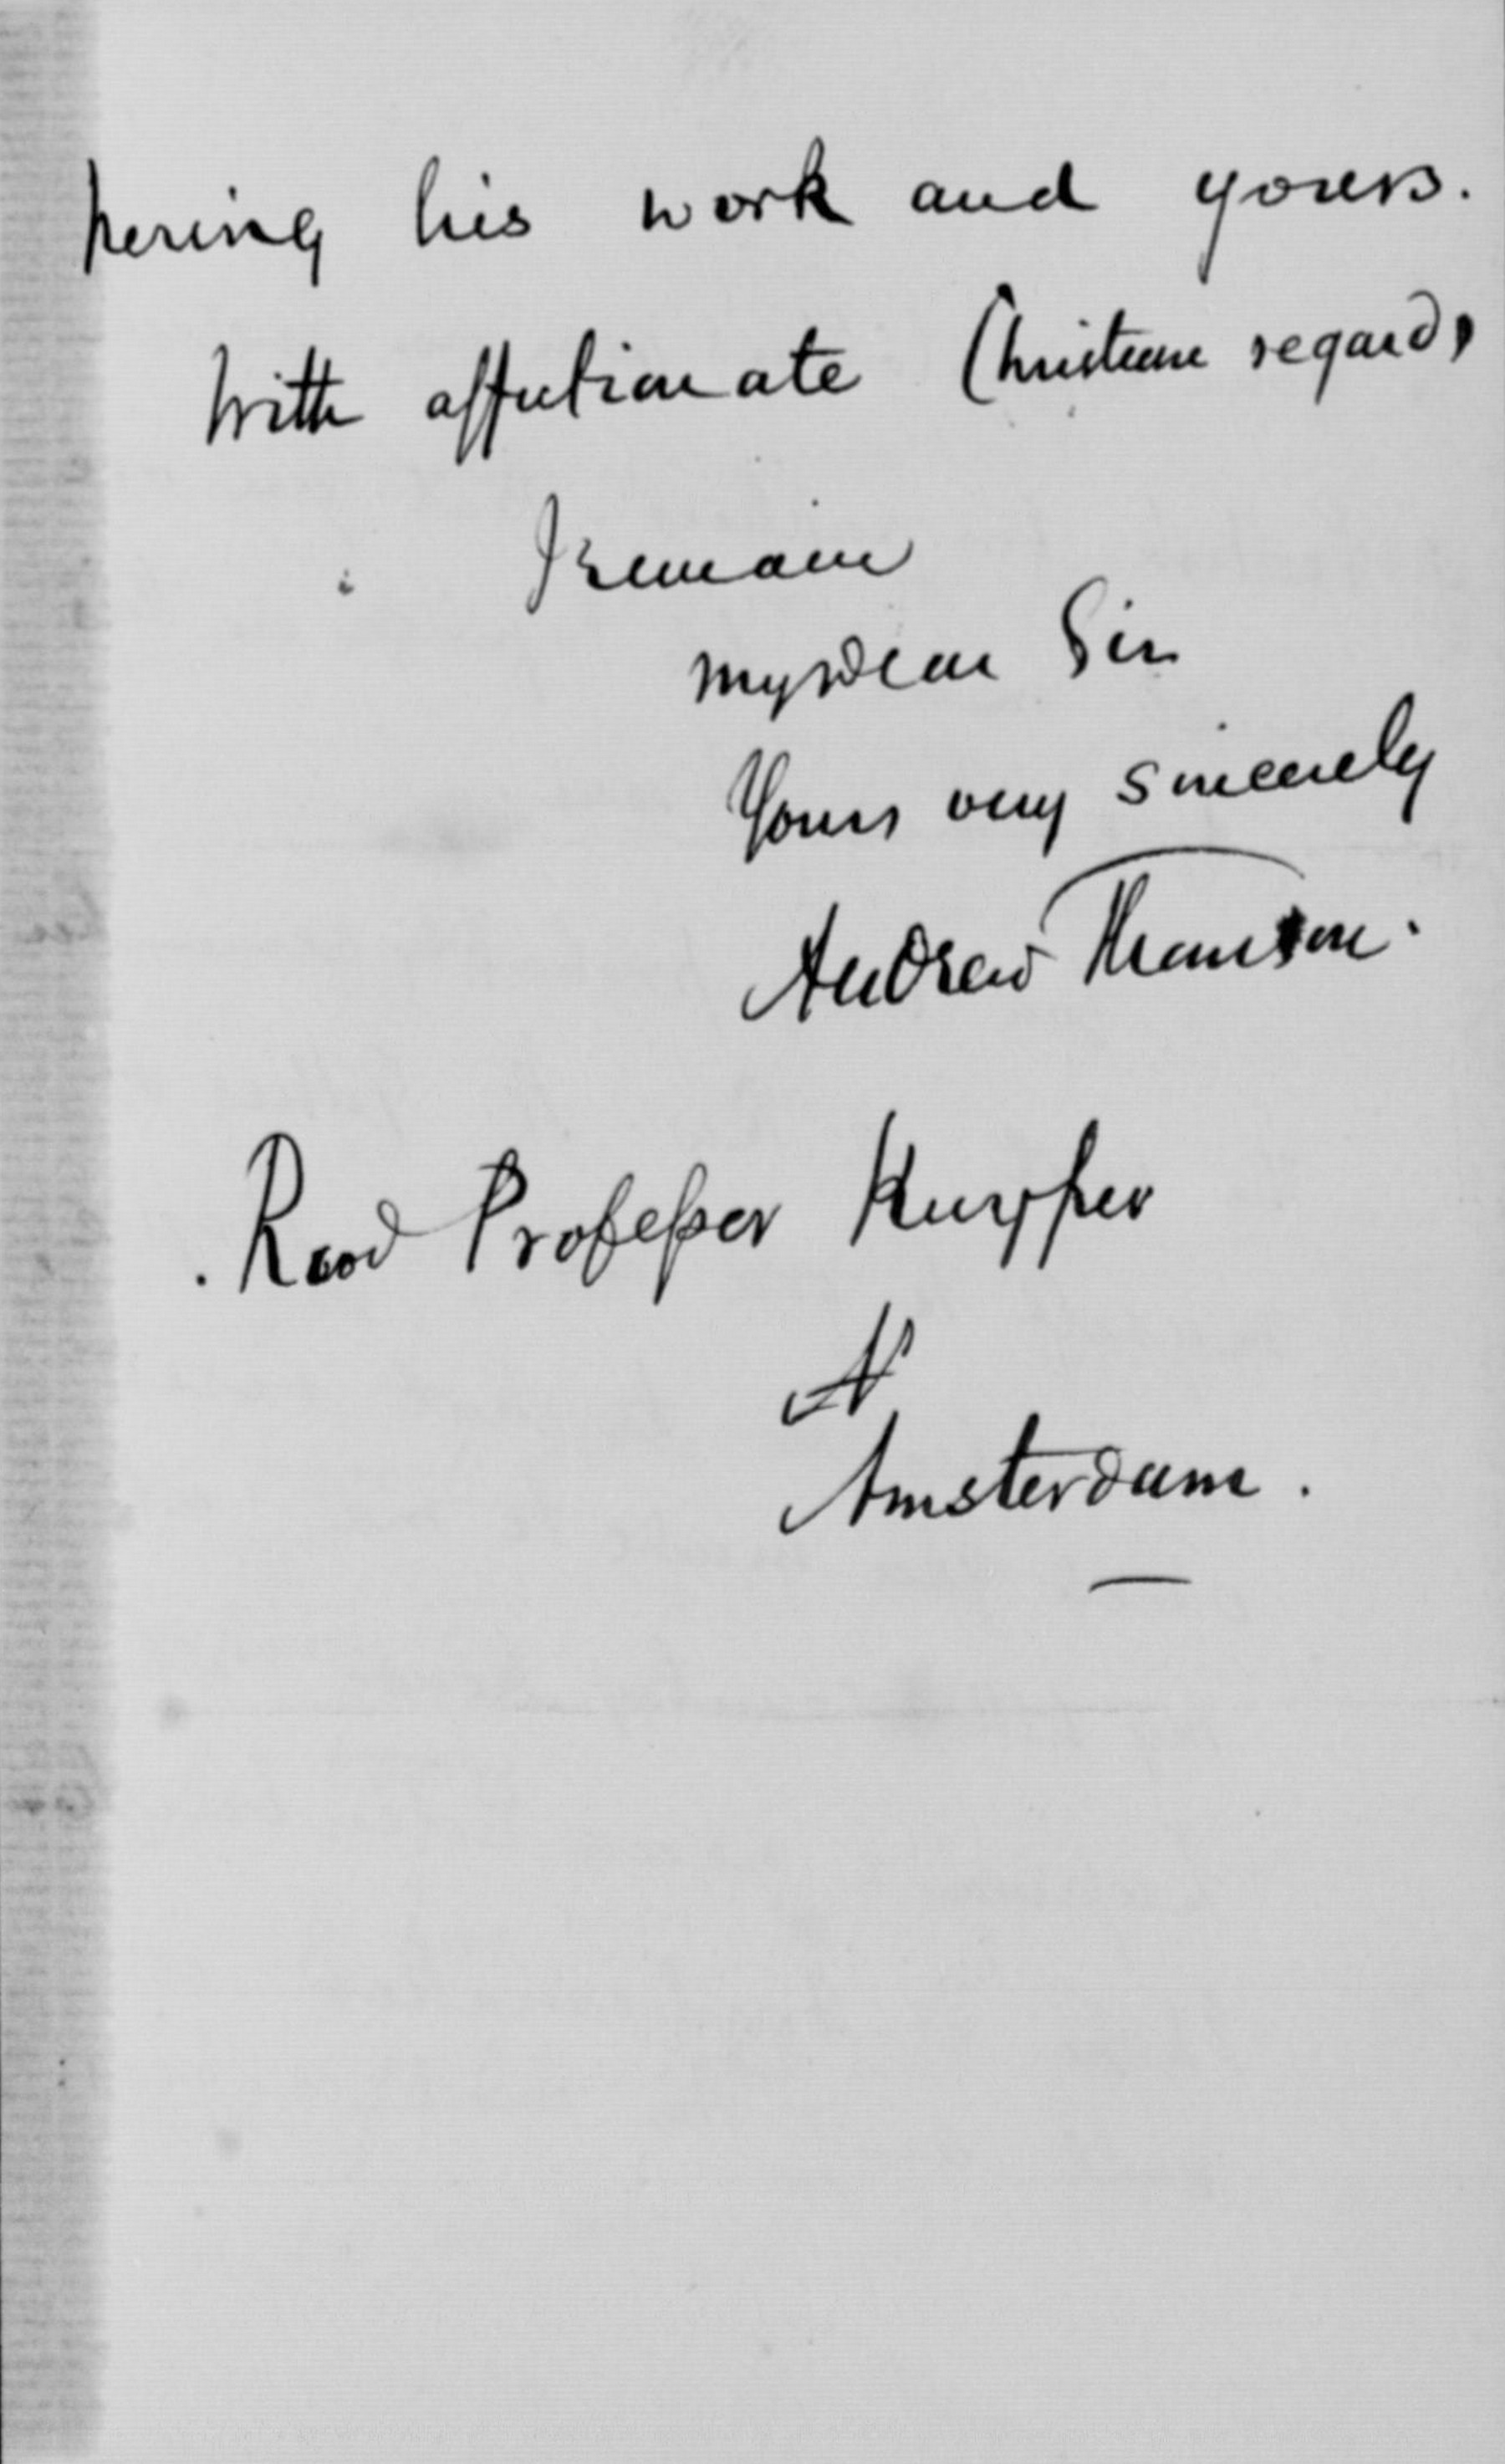 pering his work and yours.
With affectionate Christian regards
I remain
My dear Sir
Yours very sincerely
Andrew Thomson.
Revd Professor Kuyper
Amsterdam.